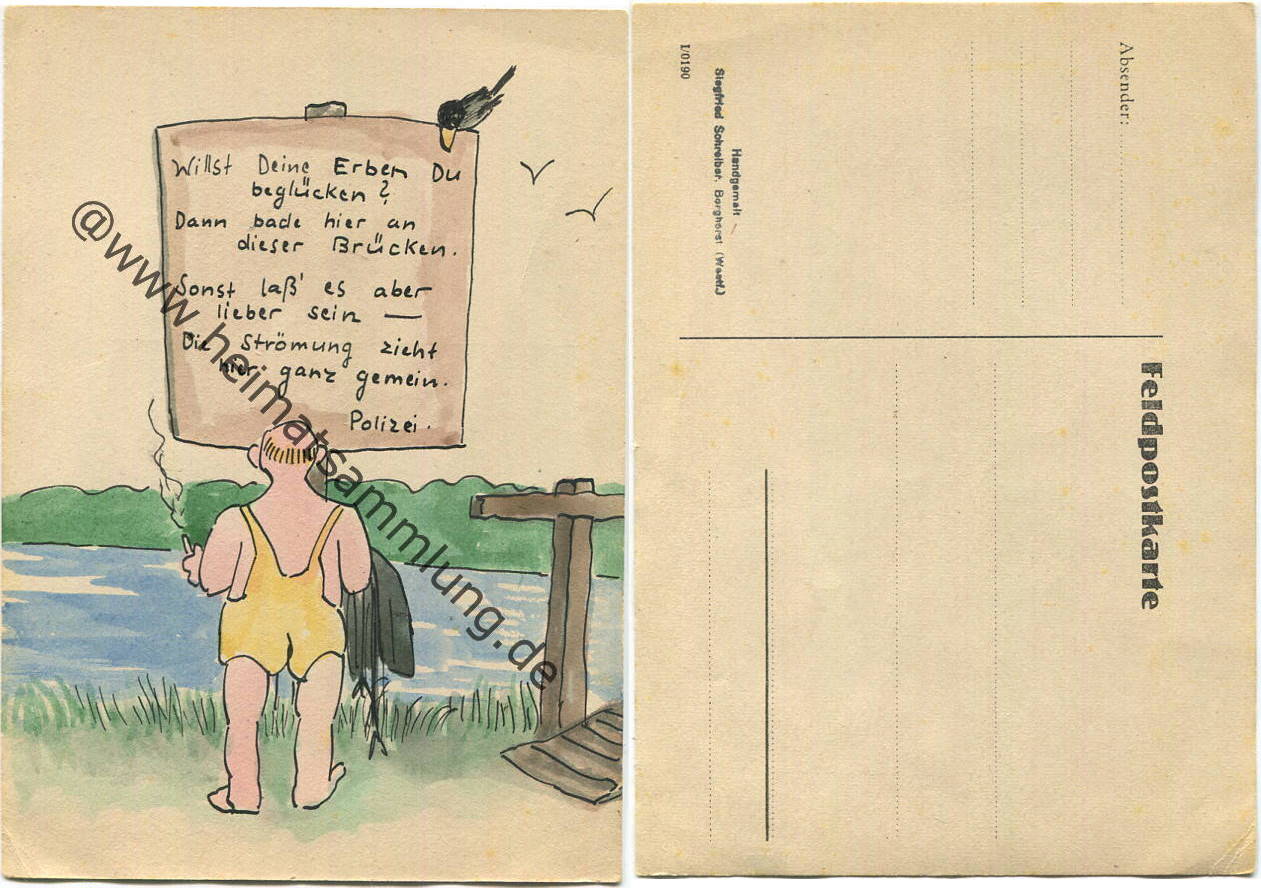 Willst Deine Erben Du
beglücken?
Dann bade hier an
dieser Brücken.
Sonst laß' es aber
lieber sein —
Die Strömung zieht
hier ganz gemein.
Polizei.
@www.heimatsammlung.de
Absender:
Feldpostkarte
Handgemalt
Siegfried Schreiber, Borghorst (Westf.)
I/0190